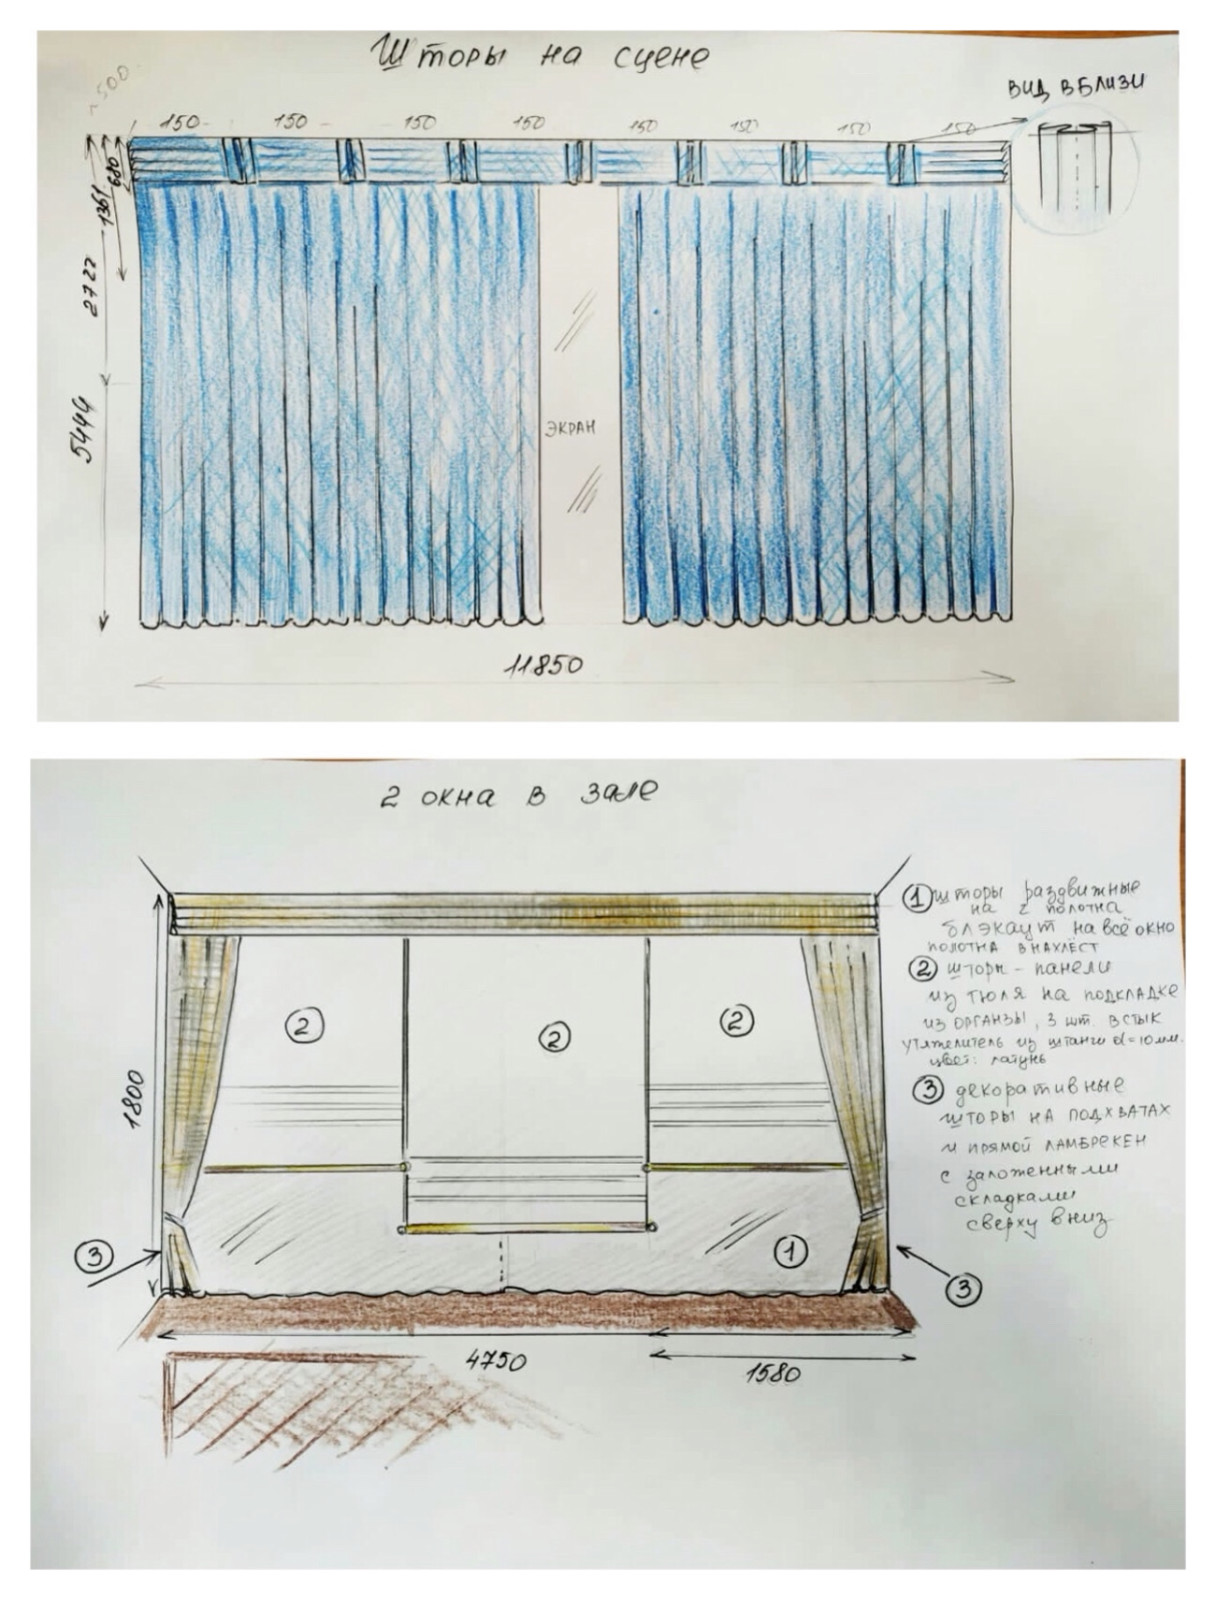 Шторы на сцене
вид вблизи
~500
150 150 150 150 150 150 150 150
680
1361
2722
5444
ЭКРАН
11850
2 окна в зале
1 шторы раздвижные
на 2 полотна
блэкаут на всё окно
полотна внахлёст
2 шторы - панели
из тюля на подкладке
из органзы, 3 шт. встык
утяжелитель из штанги d=10мм.
цвет: латунь
3 декоративные
шторы на подхватах
и прямой ламбрекен
с заложенными
складками
сверху вниз
2
2
2
1800
3
1
3
4750
1580